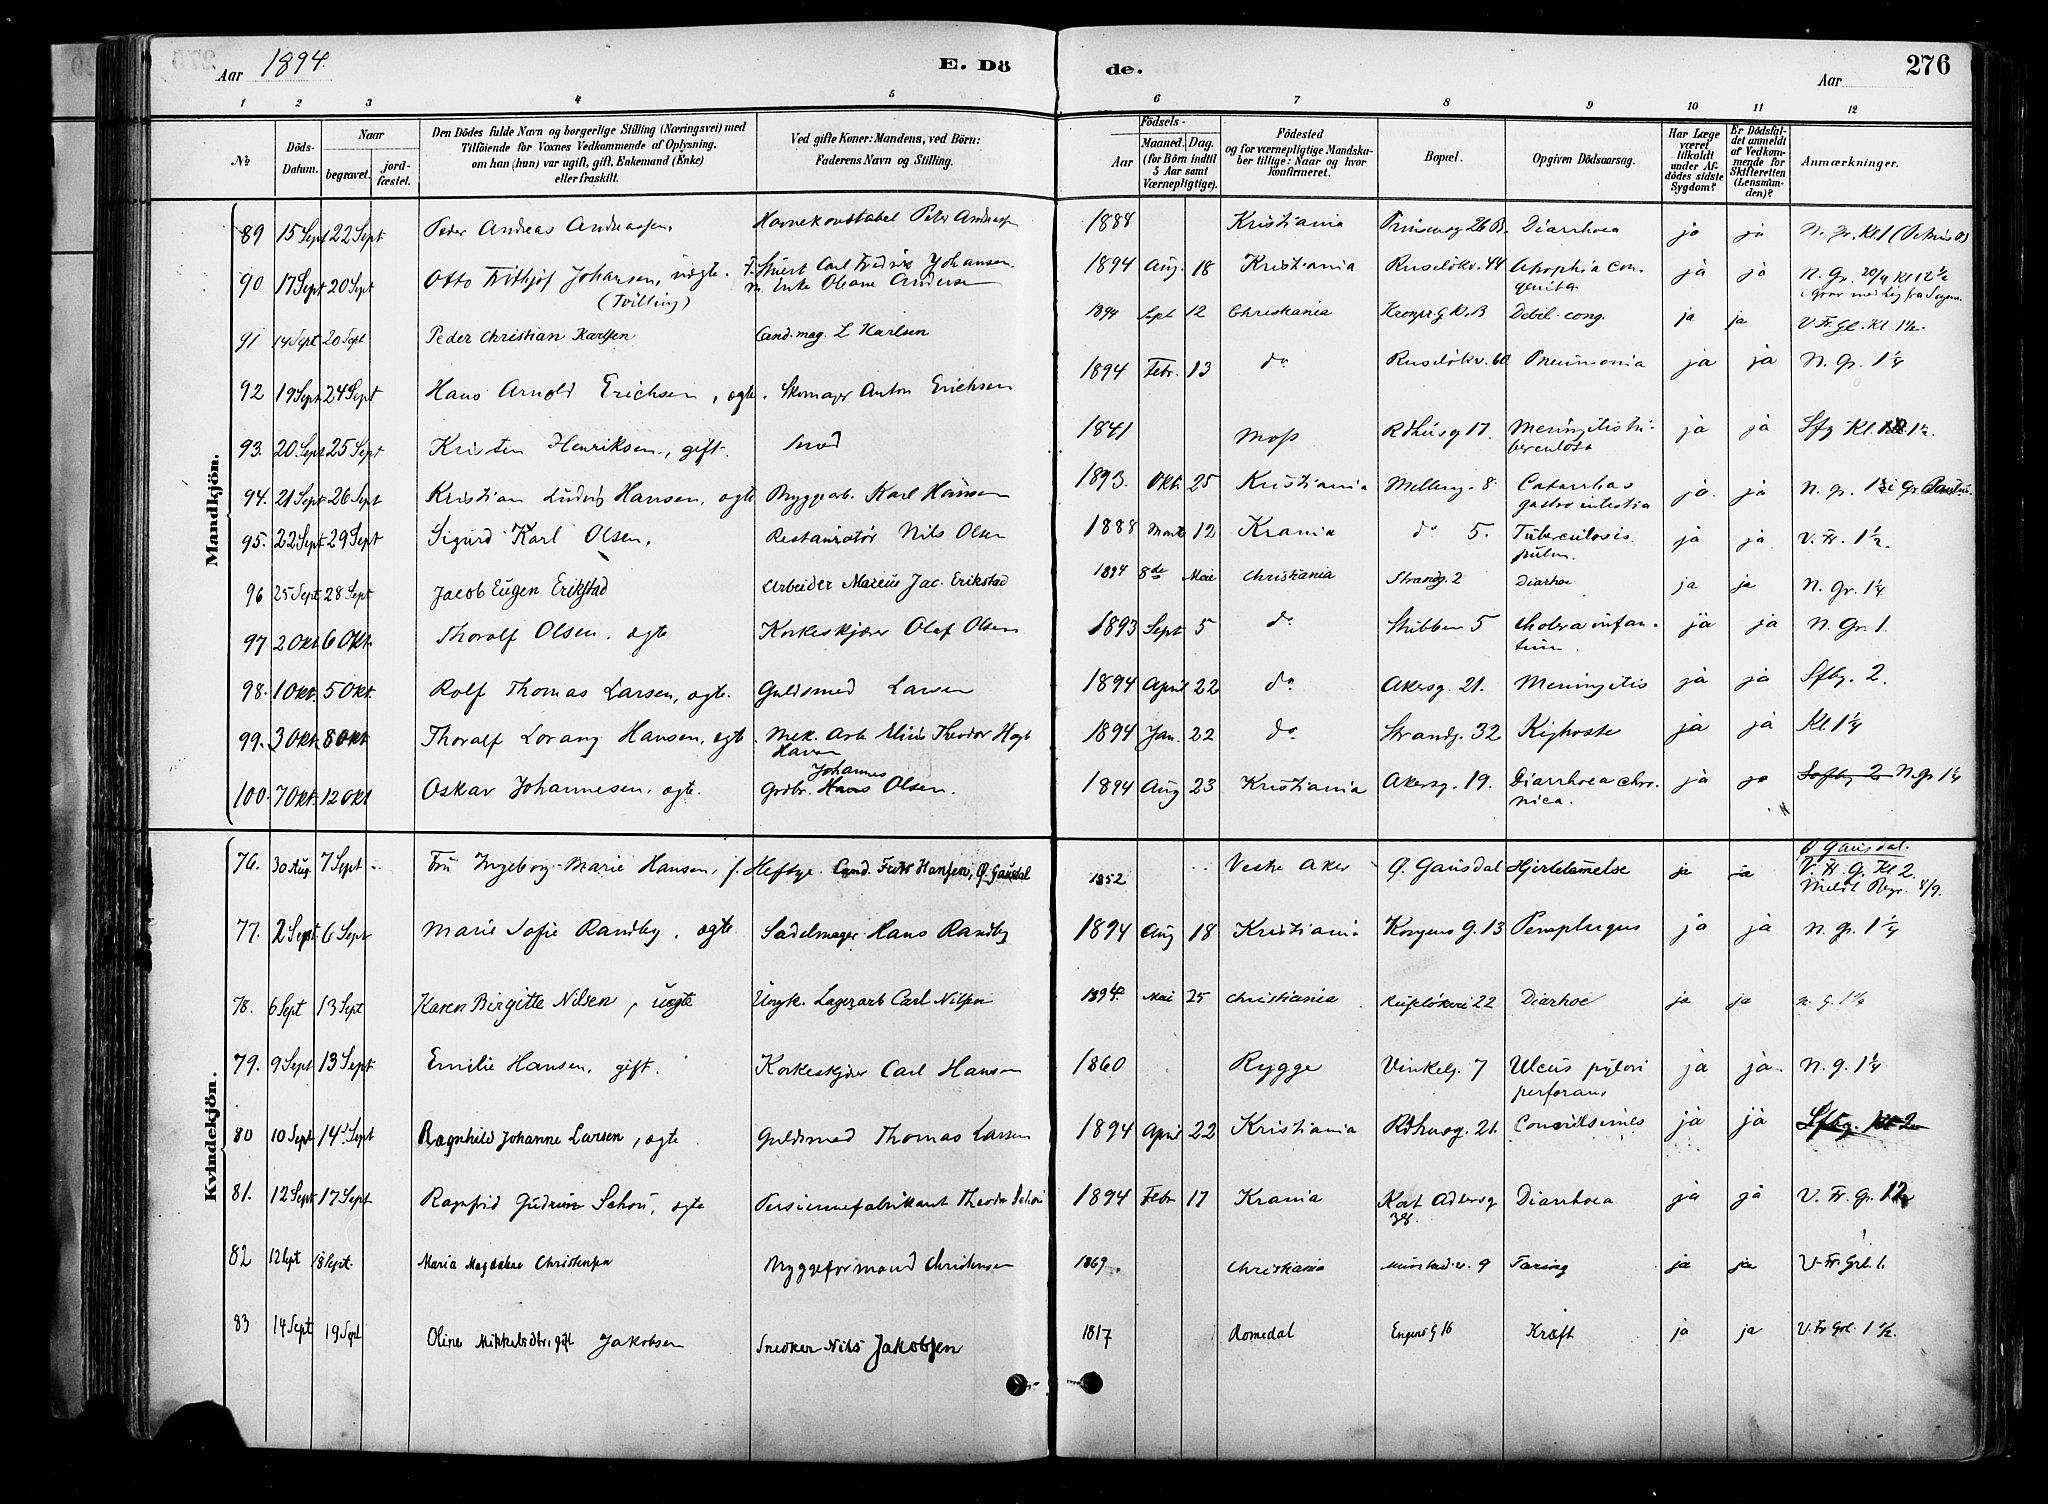 Aar 1894. E. Dö
de. Aar 276
1 2 3 4 5 6 7 8 9 10 11 12
No
Döds-Datum.
Naar
begravet.
jord-fæstet.
Den Dödes fulde Navn og borgerlige Stilling (Næringsvei) med
Tilföiende for Voxnes Vedkommende af Oplysning,
om han (hun) var ugift, gift, Enkemand (Enke)
eller fraskilt.
Ved gifte Koner: Mandens, ved Börn:
Faderens Navn og Stilling.
Födsels-
Aar
Maaned.
Dag.
(for Börn indtil
5 Aar samt
Værnepligtige).
Födested
og for værnepligtige Mandska-
ber tillige: Naar og hvor
konfirmeret.
Bopæl.
Opgiven Dödsaarsag.
Har Læge
været
tilkaldt
under Af-
dödes sidste
Sygdom?
Er Dödsfal-
det anmeldt
af Vedkom-
mende for
Skifteretten
(Lensman-
den)?
Anmærkninger.
Mandkjön.
89 15 Sept 22 Sept Peder Andreas Andreassen, Havnekonstabel Peter Andreassen 1884 Kristiania Prinsensg 26 B. Diarrhoea ja ja N. Gr. Kl 1
90 17 Sept 20 Sept Otto Frithjof Johansen, uægte. (Tvilling) F. Stuert Carl Fredrik Johansen. m Enke Oliane Andersen 1894 Aug. 18 Kristiania Ruselökv. 44 Atrophia con-genita ja ja N. Gr. 20/9 Kl 12 1/2 i Grav med Lig fra
91 14 Sept 20 Sept Peder Christian Karlsen Cand. mag. L Karlsen 1894 Sept 12 Christiania Debil. cong. ja ja V Fr. Gl. Kl 1 1/2.
92 19 Sept 24 Sept Hans Arnold Erichsen, ægte. Skomager Anton Erichsen 1894 Febr. 13 do Ruselökv. 60 Pneumonia ja ja N. Gr. 1 1/4
93. 20 Sept 25 Sept Kristen Henriksen, gift. Smed 1841 Moss Rdhusg 17. Meningitis tu-berculosa ja ja Sfbg Kl. 1 1/2.
94. 21 Sept 26 Sept Kristian Ludvig Hansen, ægte Bryggearb. Karl Hansen 1893. Okt. 25 Kristiania Mellemg. 8 Catarrhus gastro intestia ja ja N. Gr. 1
95. 22 Sept 29 Sept Sigurd Karl Olsen, Restauratør Nils Olsen 1888 Marts 12 Krania do 5. Tuberculosis pulm. ja ja V. Fr. 1 1/2.
96 25 Sept 28 Sept Jacob Eugen Erikstad Arbeider Marcus Jac. Erikstad 1894 8de Mai Christiania Strandg. 2 Diarhoe ja ja N. Gr. 1 1/4
97 2 Okt 6 Okt. Thoralf Olsen, ægte Korkeskjærer Olaf Olsen 1893 Sept 5 do Stubben 5 Cholera infan-tum. ja ja N. Gr. 1.
98. 1 Okt. 5 Okt. Rolf Thomas Larsen, ægte. Guldsmed Larsen 1894 April 22 do Akersg. 21. Meningitis ja ja Sfbg. 2.
99. 3 Okt. 8 Okt Thoralf Lorang Hansen, ægte Mek. Arb. Theodor Hansen 1894 Jan. 22 do Strandg. 32 Kighoste ja ja Kl 1 1/4
100. 7 Okt. 12 Okt Oskar Johannesen, ægte. Grdbr. Hans Johannes Olsen. 1894 Aug 23 Kristiania Akersg. 19. Diarrhoea chro-nica. ja ja Sofbg 2 N. Gr 1 1/4
Kvindekjön.
76. 30 Aug. 7 Sept Fru Ingeborg Marie Hansen, f. Heftye. Cand. Hansen, Ø. Gausdal 1852 Vestre Aker Ø. Gausdal Hjertelamelse ja ja Ø Gausdal. V. Fr. G. Kl 2. Meldt 8/9.
77. 2 Sept 6 Sept Marie Sofie Randby, ægte Sadelmager Hans Randby 1894 Aug 18 Kristiania Kongens G. 13 Pemphigus ja ja N. Gr. 1 1/4
78. 6 Sept 13 Sept Karen Birgitte Nilsen, uægte Ungk. Lagerarb Carl Nilsen 1894. Mai 25 Christiania 22 Diarhoe ja ja N. G. 1 1/4
79. 9 Sept 13 Sept Emilie Hansen, gift. Korkeskjærer Carl Hansen 1860 Rygge Vinkelg. 7 Ulcus pylori perforans ja ja N. G. 1 1/4
80 10 Sept 14 Sept Ragnhild Johanne Larsen, ægte Guldsmed Thomas Larsen 1894 April 22 Kristiania Rdhusg. 21. Convulsiones ja ja Sfbg. Kl 2
81. 12 Sept 17 Sept Ragnfrid Gudrun Schou, ægte Persiennefabrikant Theodor Schou 1894 Febr 17 Krania Kort Adlersg 38. Diarrhoea ja ja V. Fr. Gr.
82 12 Sept 18 Sept. Maria Magdalene Christensen Bryggeformand Christensen 1869. Christiania Munkedv. 9 Tæring ja ja V. Fr. Grl. 1.
83 14 Sept 19 Sept Oline Mikkelsdtr, gift Jakobsen Snedker Nils Jakobsen 1817 Romedal Engens G 16 Kræft ja ja V. Fr Grl. 1 1/2.